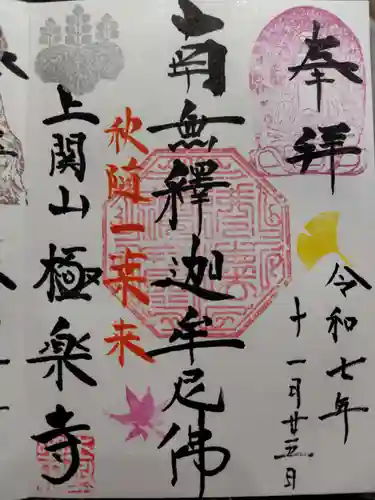 奉拝
令和七年
十一月廿三日
南無釋迦牟尼佛
秋随一葉来
上関山極楽寺